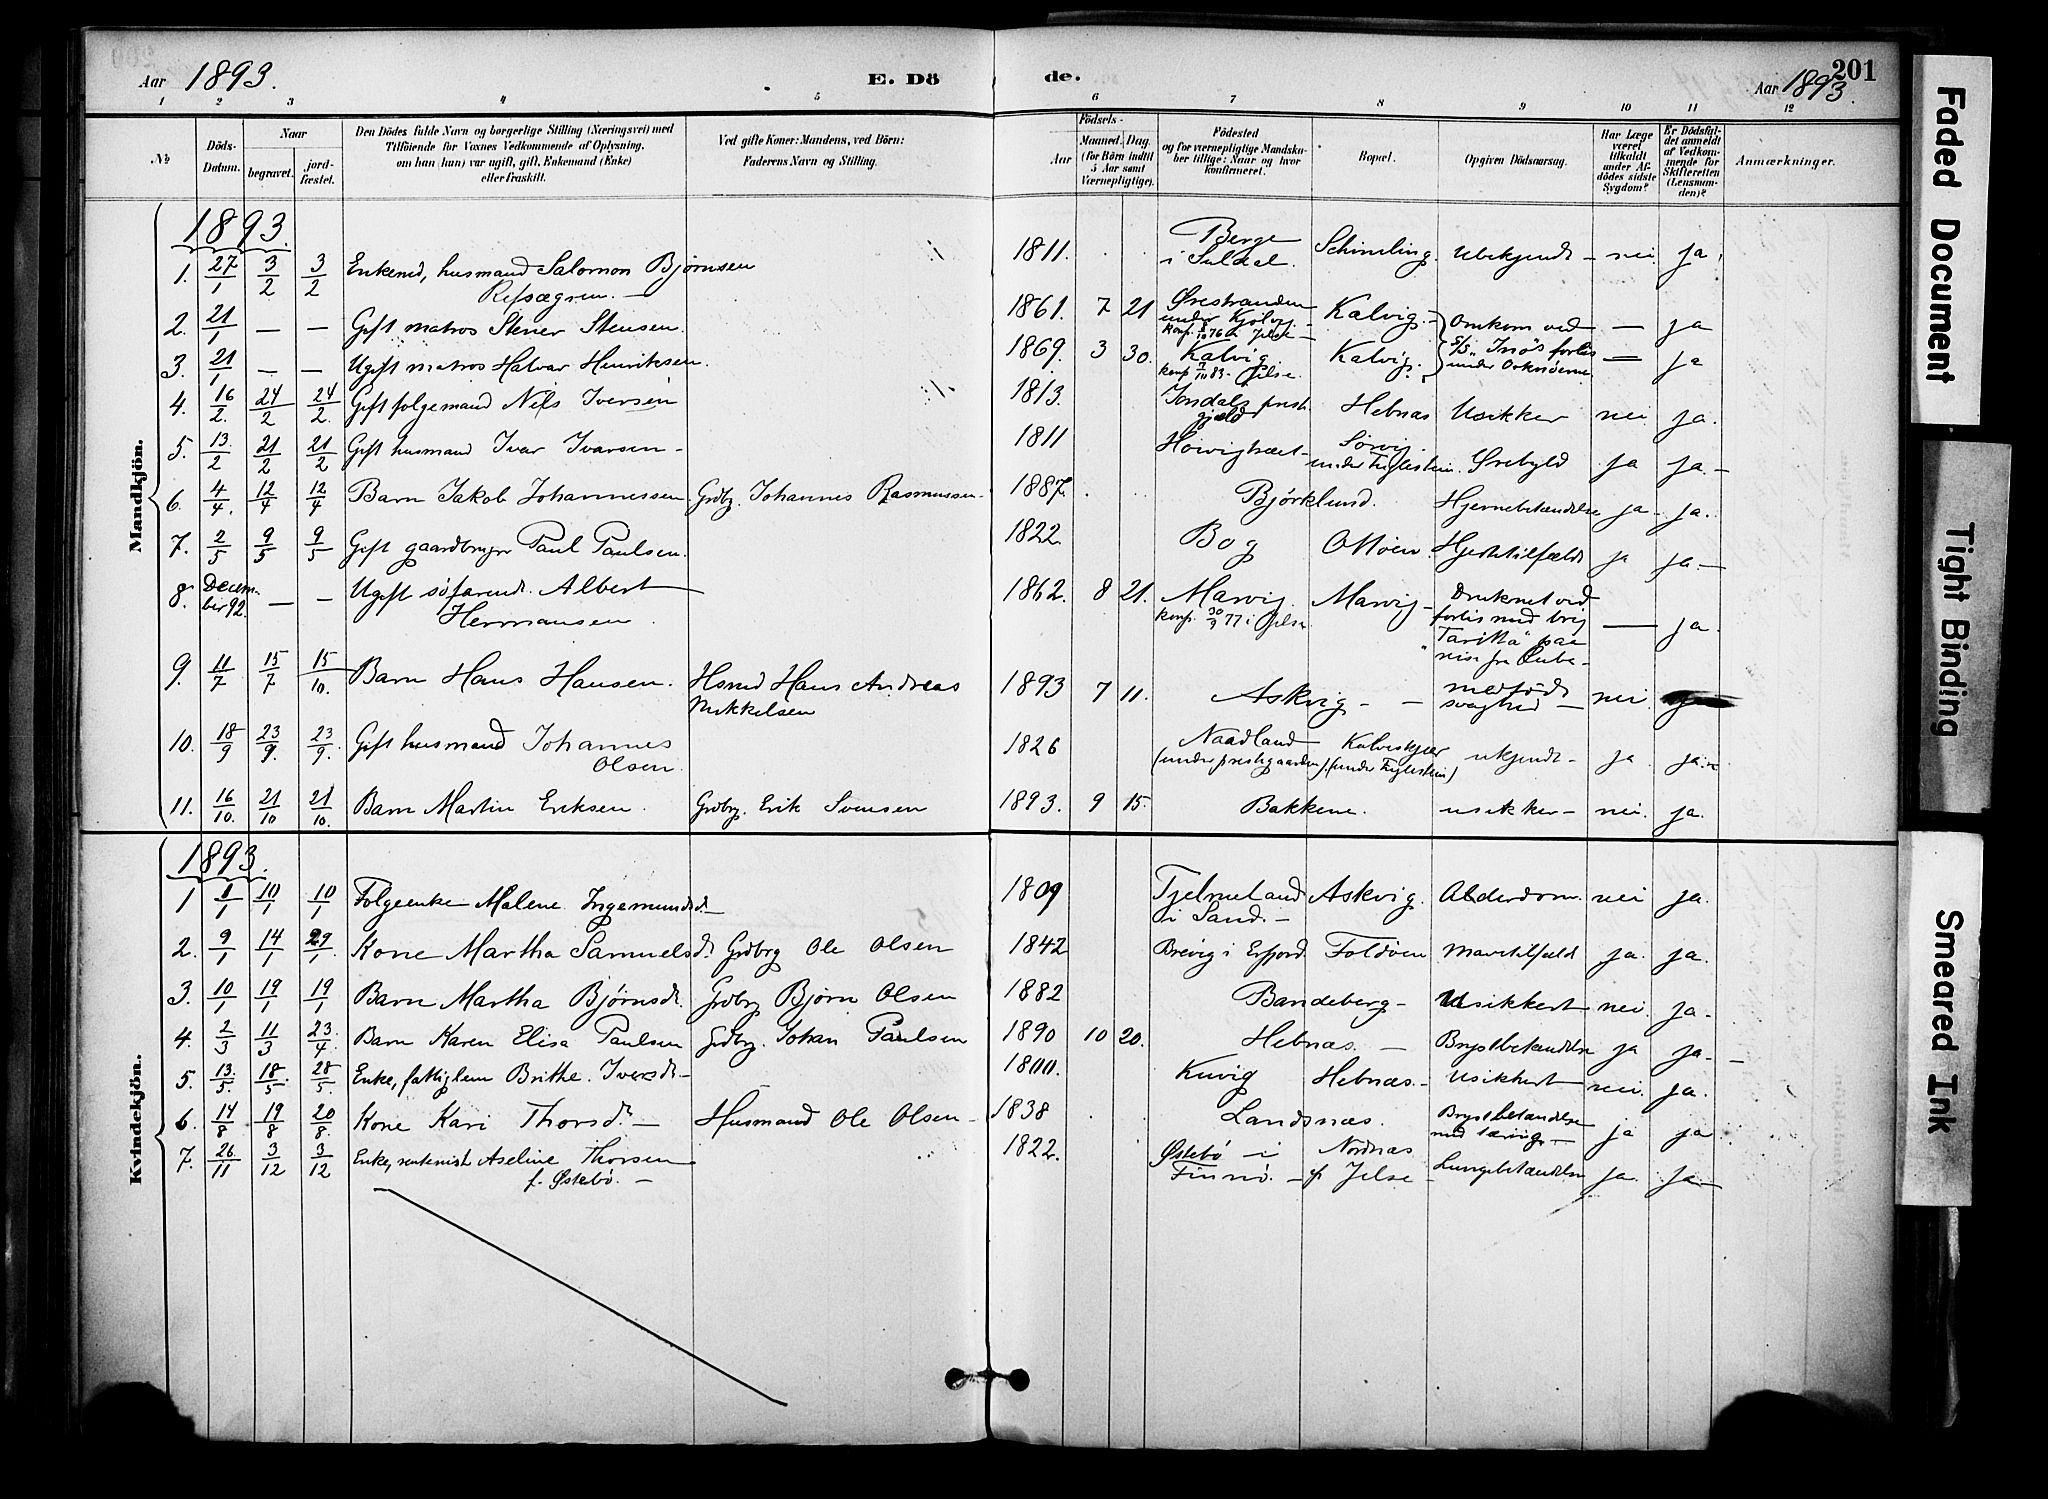 Aar 1893. E. Dö de. Aar 1893. 201
1 2 3 4 5 6 7 8 9 10 11 12
№ Döds-Datum. Naar begravet. jord-fæstet. Den Dödes fulde Navn og borgerlige Stilling (Næringsvei) med Tilföiende for Voxnes Vedkommende af Oplysning, om han (hun) var ugift, gift, Enkemand (Enke) eller fraskilt. Ved gifte Koner: Mandens, ved Börn: Faderens Navn og Stilling. Födsels- Aar Maaned. Dag. (for Börn indtil 5 Aar samt Værnepligtige). Födested og for værnepligtige Mandskaber tillige: Naar og hvor konfirmeret. Bopæl. Opgiven Dödsaarsag. Har Læge været tilkaldt under Afdödes sidste Sygdom? Er Dödsfaldet anmeldt af Vedkommende for Skifteretten (Lensmanden)? Anmærkninger.
Mandkjön.
1893.
1. 27/1 3/2 3/2 Enkemd, husmand Salomon Bjørnsen Refsægren. 1811. Berge i Suldal. Schimling. Ubekjendt nei ja
2. 21/1 — — Gift matros Stener Stensen. 1861. 7 21 Ørestranden under Kjølvig. Konf. 76 i Jelse Kalvig. Omkom ved — ja
3. 21/1 — — Ugift matros Halvar Henriksen. 1869. 3 30. Kalvig. konf. 83 Jelse. Kalvig. S/S "Inö's forlis under Orknöerne — ja
4. 16/2. 24/2 24/2. Gift folgemand Nils Iversen 1813. Jondals prestgjæld Hebnæs Usikker nei ja.
5. 13/2 21/2 21/2 Gift husmand Ivar Ivarsen 1811 Sørvig under Tiglestein. Ørebyld ja ja.
6. 4/4. 12/4 12/4 Barn Jakob Johannessen Grdbg. Johannes Rasmussen 1887. Bjørklund. Hjernebetændelse ja ja.
7. 2/5 9/5 9/5 Gift gaardbrugr Paul Paulsen. 1822. Bog Ottöen. Hjertetilfælde ja ja.
8. Decem-ber 92. — — Ugift söfarende Albert Hermansen. 1862. 8 21. Marvig. konf. 30/9 77 i Jelse Marvig Druknet ved forlis med brig "Taritta" paa reise fra Cuba — ja
9. 11/7 15/7 15/10. Barn Hans Hansen. Hsmd Hans Andreas Mikkelsen 1893 7 11. Askvig medfödt svaghed nei
10. 18/9 23/9. 23/9. Gift husmand Johannes Olsen. 1826 Naadland (under prestegaarden) Kalveskjær (under Tiglestein) ukjendt ja ja
11. 16/10. 21/10 21/10. Barn Martin Eriksen. Grdbg. Erik Svensen 1893. 9 15. Bakkene. usikker nei. ja.
Kvindekjön.
1893.
1 1/1 10/1 10/1 Folgeenke Malene Ingemundsd. 1809 Tjelmeland i Sand. Askvig. Alderdom. nei ja.
2. 9/1 14/1 29/1 Kone Martha Samuelsd. Grdbrg Ole Olsen 1842 Brevig i Erfjord Foldöen Mavetilfæld ja. ja.
3. 10/1 19/1 19/1 Barn Martha Bjørnsdt. Grdbrg Bjørn Olsen 1882 Bandeberg Usikkert nei. ja
4. 2/3 11/3 23/4 Barn Karen Elisa Paulsen Grdbrg. Johan Paulsen 1890 10 20. Hebnæs. Brystbetændelse ja ja
5. 13/5. 18/5. 28/5 Enke, fattiglem Brithe Iversdt 1800. Kuvig Hebnæs. Usikkert nei. ja.
6 14/8 19/8 20/8. Kone Kari Thorsd. Husmand Ole Olsen 1838 Landsnæs. Brystbetændelse med tæring ja ja
7. 26/11 3/12 3/12 Enke, rentenist Aseline Thorsen f. Østebö. 1822. Østebö i Finnö. Nordnæs p. Jelse Lungebetændelse ja. ja.
Faded Document
Tight Binding
Smeared Ink